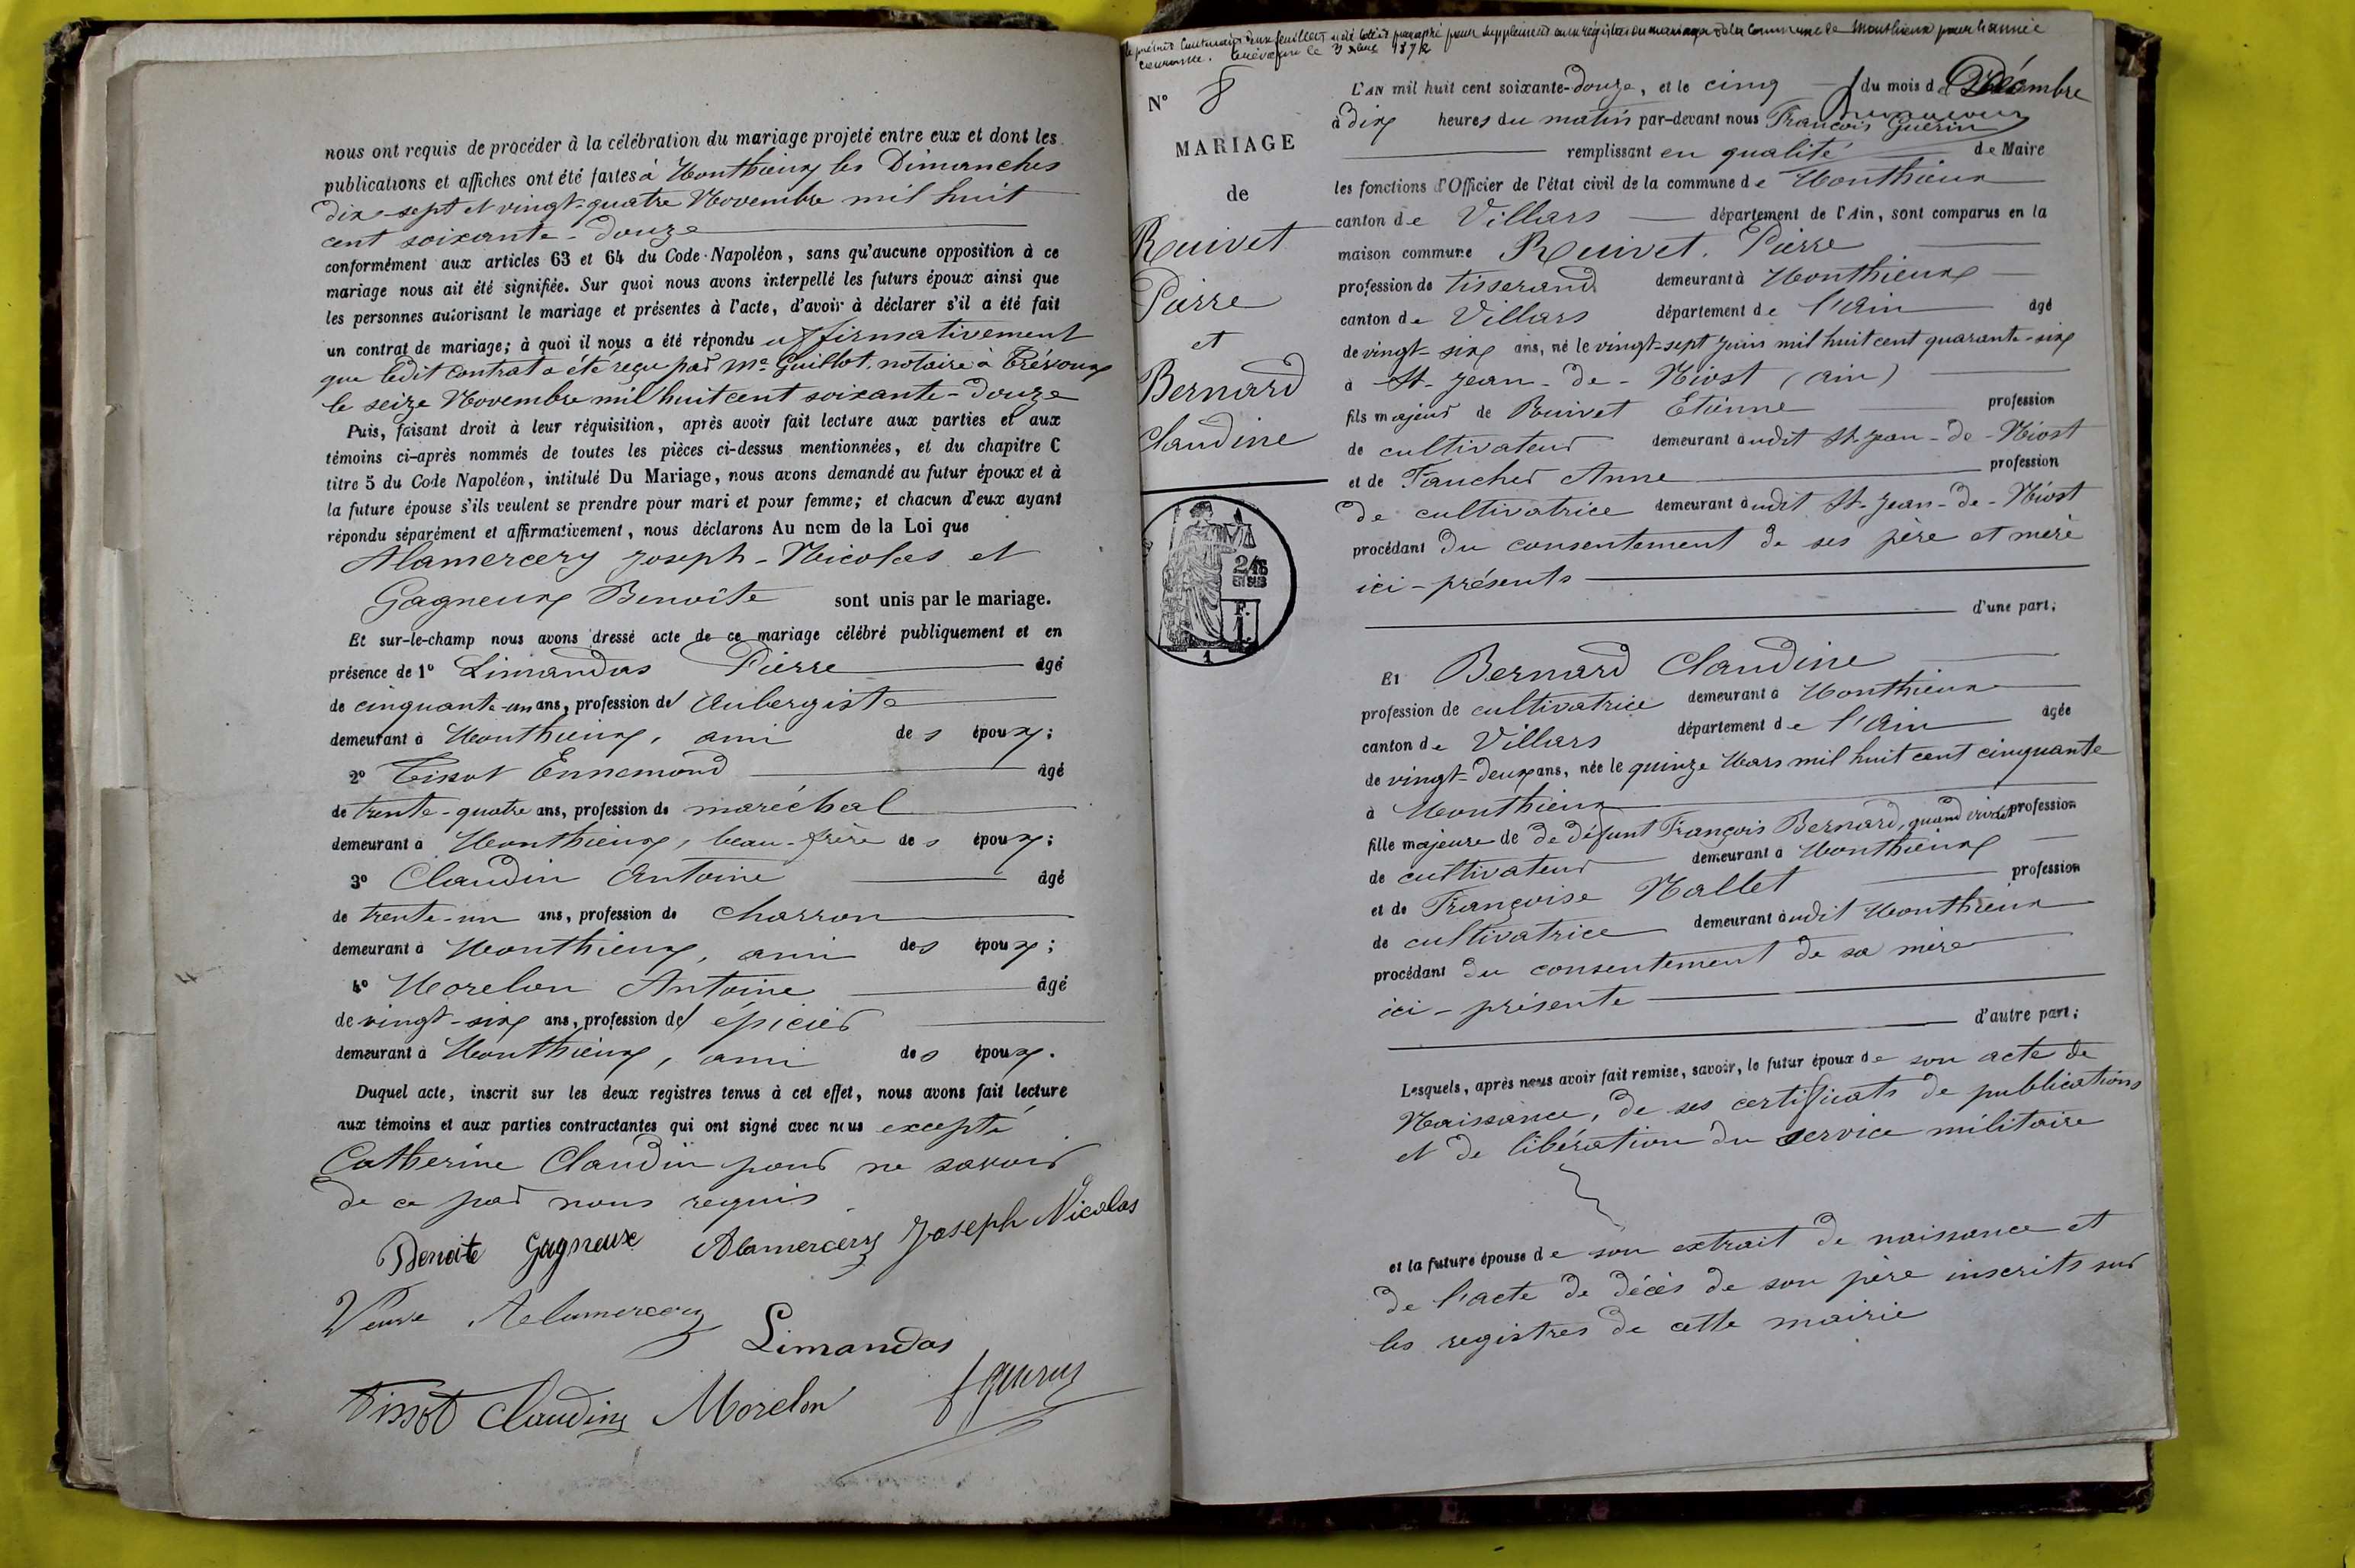 nous ont requis de procéder à la célébration du mariage projeté entre eux et dont les
publications et affiches ont été faites à Monthieux les Dimanches
dix-sept et vingt-quatre Novembre mil huit
cent soixante-douze
conformément aux articles 63 et 64 du Code Napoléon, sans qu'aucune opposition à ce
mariage nous ait été signifiée. Sur quoi nous avons interpellé les futurs époux ainsi que
les personnes autorisant le mariage et présentes à l'acte, d'avoir à déclarer s'il a été fait
un contrat de mariage; à quoi il nous a été répondu affirmativement
que ledit contrat a été reçu par Me Guillot, notaire à Trévoux
le seize Novembre mil huit cent soixante-douze
Puis, faisant droit à leur réquisition, après avoir fait lecture aux parties et aux
témoins ci-après nommés de toutes les pièces ci-dessus mentionnées, et du chapitre C
titre 5 du Code Napoléon, intitulé Du Mariage, nous avons demandé au futur époux et à
la future épouse s'ils veulent se prendre pour mari et pour femme; et chacun d'eux ayant
répondu séparément et affirmativement, nous déclarons Au nom de la Loi que
Alamercery Joseph-Nicolas et
Gagneux Benoîte sont unis par le mariage.
Et sur-le-champ nous avons dressé acte de ce mariage célébré publiquement et en
présence de 1° Limandas Pierre âgé
de cinquante-un ans, profession de Aubergiste
demeurant à Monthieux, ami des époux;
2° Tissot Ennemond âgé
de trente-quatre ans, profession de maréchal
demeurant à Monthieux, beau-frère des époux;
3° Claudin Antoine âgé
de trente-un ans, profession de charron
demeurant à Monthieux, ami des époux;
4° Morelon Antoine âgé
de vingt-six ans, profession de épicier
demeurant à Monthieux, ami des époux.
Duquel acte, inscrit sur les deux registres tenus à cet effet, nous avons fait lecture
aux témoins et aux parties contractantes qui ont signé avec nous excepté
Catherine Claudin pour ne savoir
de ce par nous requis
Benoite Gagneux Alamercery Joseph Nicolas
Veuve Alamercery
Limandas
Tissot Claudin Morelon f guerin
le présent contenant deux feuillets a été coté et paraphé pour supplément aux registres de mariage de la Commune de Monthieux pour l'année
courante. Trévoux le 3 xbre 1872
N° 8
MARIAGE
de
Ruivet
Pierre
et
Bernard
Claudine
2/10
EN SUS
F.
1
L'AN mil huit cent soixante-douze, et le cinq du mois de Décembre
à dix heures du matin par-devant nous François Guérin
remplissant en qualité de Maire
les fonctions d'Officier de l'état civil de la commune de Monthieux
canton de Villars département de l'Ain, sont comparus en la
maison commune Ruivet Pierre
profession de tisserand demeurant à Monthieux
canton de Villars département de l'Ain âgé
de vingt-six ans, né le vingt-sept juin mil huit cent quarante-six
à St-Jean-de-Niost (Ain)
fils majeur de Ruivet Etienne profession
de cultivateur demeurant audit St-Jean-de-Niost
et de Faucher Anne profession
de cultivatrice demeurant audit St-Jean-de-Niost
procédant du consentement de ses père et mère
ici-présents
d'une part;
Et Bernard Claudine
profession de cultivatrice demeurant à Monthieux
canton de Villars département de l'Ain âgée
de vingt-deux ans, née le quinze Mars mil huit cent cinquante
à Monthieux
fille majeure de de défunt François Bernard, quand vivait profession
de cultivateur demeurant à Monthieux
et de Françoise Mallet profession
de cultivatrice demeurant audit Monthieux
procédant du consentement de sa mère
ici-présente
d'autre part;
Lesquels, après nous avoir fait remise, savoir, le futur époux de son acte de
Naissance, de ses certificats de publications
et de libération du service militaire
et la future épouse de son extrait de naissance et
de l'acte de décès de son père inscrits sur
les registres de cette mairie